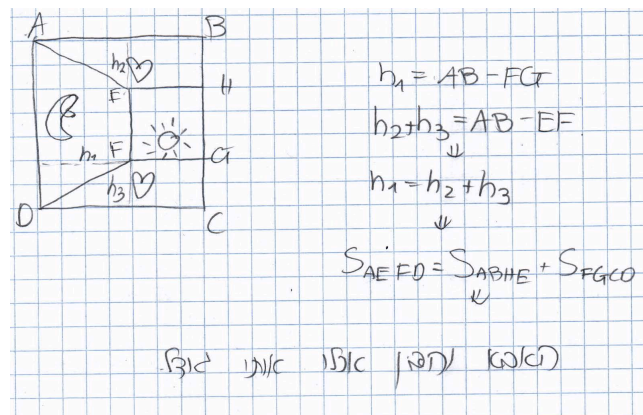 A B
h₂
E H
h₁ F G
h₃
D C
h₁ = AB - FG
h₂+h₃ = AB - EF
⇓
h₁ = h₂ + h₃
⇓
S_AEFD = S_ABHE + S_FGCD
⇓
האמא והבן אכלו אותו גודל